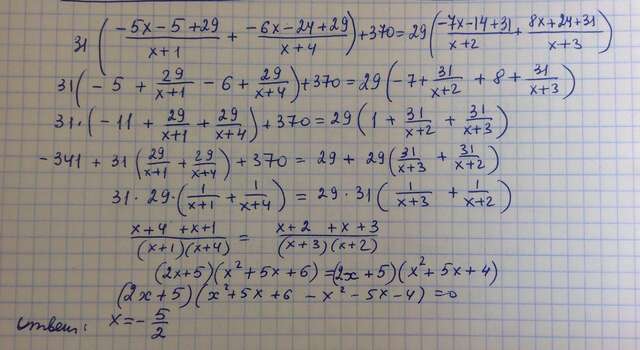 31 ( (-5x-5+29)/(x+1) + (-6x-24+29)/(x+4) ) + 370 = 29 ( (-7x-14+31)/(x+2) + (8x+24+31)/(x+3) )
31 ( -5 + 29/(x+1) - 6 + 29/(x+4) ) + 370 = 29 ( -7 + 31/(x+2) + 8 + 31/(x+3) )
31 · ( -11 + 29/(x+1) + 29/(x+4) ) + 370 = 29 ( 1 + 31/(x+2) + 31/(x+3) )
-341 + 31 ( 29/(x+1) + 29/(x+4) ) + 370 = 29 + 29 ( 31/(x+3) + 31/(x+2) )
31 · 29 · ( 1/(x+1) + 1/(x+4) ) = 29 · 31 ( 1/(x+3) + 1/(x+2) )
(x+4+x+1)/((x+1)(x+4)) = (x+2+x+3)/((x+3)(x+2))
(2x+5)(x²+5x+6) = (2x+5)(x²+5x+4)
(2x+5)(x²+5x+6-x²-5x-4) = 0
ответ: x = -5/2